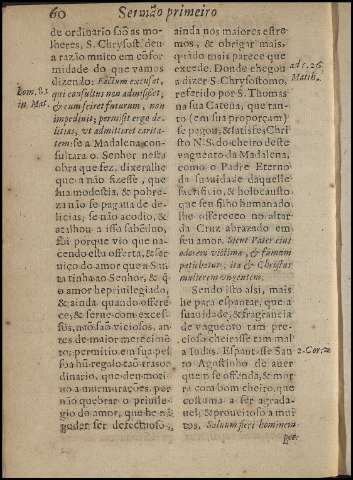 60 Sermão primeiro
de ordinario saõ as mo-
lheres, S. Chrysost. deu
a razão muito em cõfor
midade do que vamos
dizendo: Factum excusat,
qui consultus non admisisset,
& cum sciret futurum, non
impediuit; permisit ergo de
litias, vt admitteret carita-
tem: se a Madalena con-
sultara o Senhor nesta
obra que fez, dixeralhe
que a não fizesse, que
sua modestia, & pobre-
za não se pagaua de de-
licias; se não acodio, &
atalhou a isso sabendoo,
foi porque vio que na-
cendo esta offerta, & ser
uiço do amor que a San-
ta tinha ao Senhor, & q̃
o amor he priuilegiado,
& ainda quando offere-
ce, & serue com exces-
sos, não saõ viciosos, an-
tes de maior merecimẽ
to; permitio em sua pes
soa hũ regalo taõ extraor
dinario, que deu moti-
uo a murmurações, por
não quebrar o priuile-
gio do amor, que he nã
poder ser defectuoso,
Hom. 81.
in Mat.
ainda nos maiores estre-
mos, & obrigar mais,
quãdo mais parece que
excede. Donde chegou
a dizer S. Chrysostomo,
referido por S. Thomas
na sua Catena, que tan-
to (em sua proporçam)
se pagou, & satisfes Chri
sto N. S. do cheiro deste
vnguento da Madalena,
como o Padre Eterno
da suauidade daquelle
sacrificio, & holocausto
que seu filho humanado
lhe offereceo no altar
da Cruz abrazado em
seu amor. Sicut Pater eius
odorem victimæ, & fumum
patiebatur, ita & Christus
mulierem vngentem.
Sendo isto assi, mais
he para espantar, que a
suauidade, & fragrancia
de vnguento tam pre-
cioso cheirasse tam mal
a Iudas. Espantase San
to Agostinho de auer
quem se offenda, & mor
ra com bom cheiro, que
costuma a ser agrada-
uel, & proueitoso a mui
tos. Saluum fieri hominem
per
ad c. 26.
Matth.
2. Cor. 2.